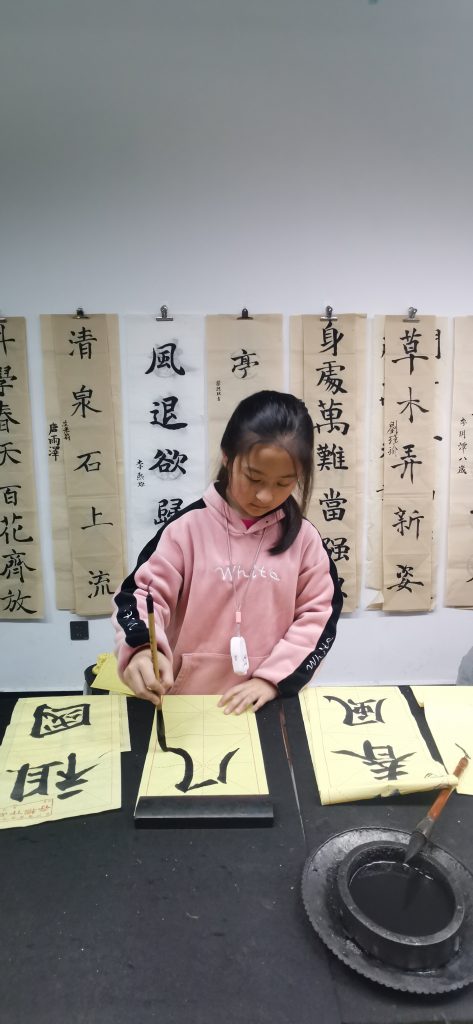 學春天百花齊放
清泉石上流
唐雨澤
風退欲歸
亭
身處萬難當强
草木弄新姿
八歲
White
White
國
祖
風
春